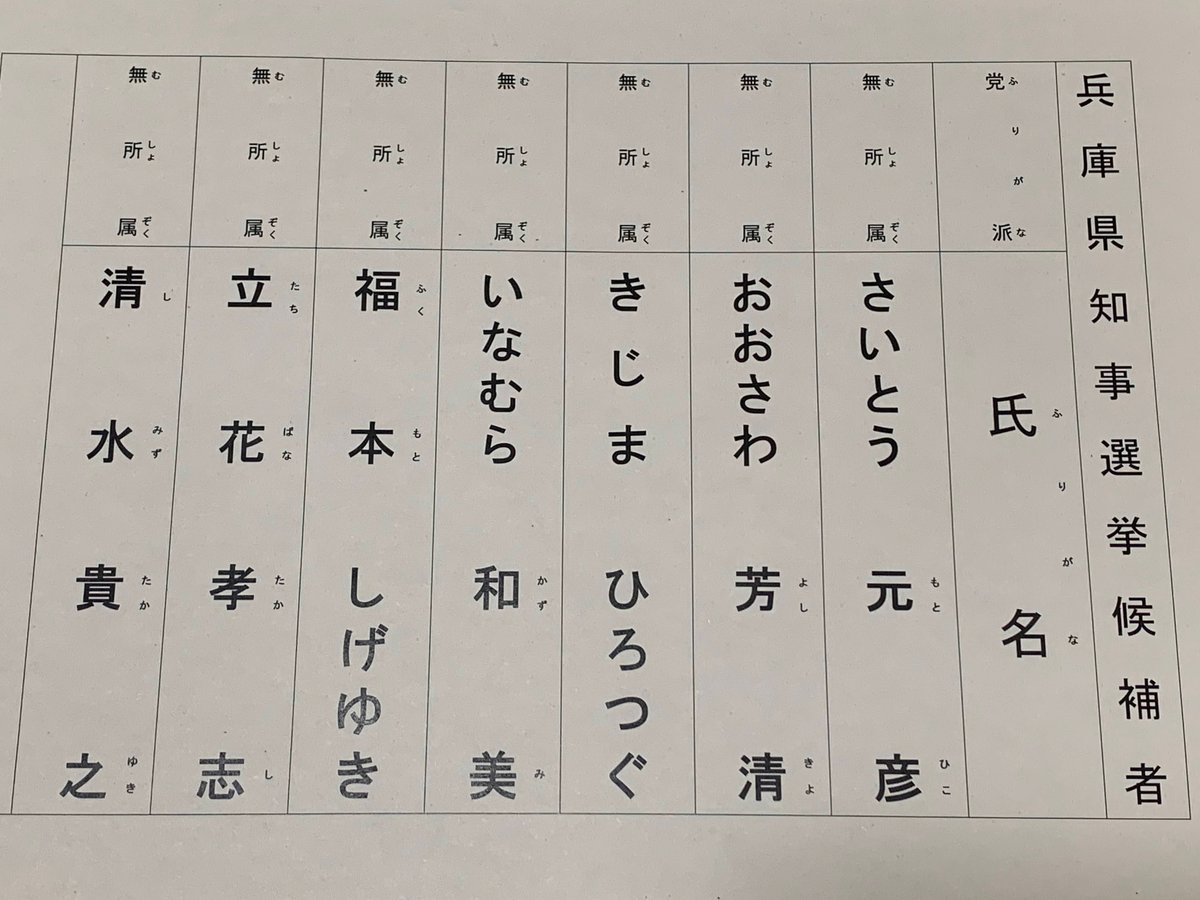 兵庫県知事選挙候補者
党派 ふりがな
氏名 ふりがな
無所属 むしょぞく
さいとう元彦 もとひこ
無所属 むしょぞく
おおさわ芳清 よしきよ
無所属 むしょぞく
きじまひろつぐ
無所属 むしょぞく
いなむら和美 かずみ
無所属 むしょぞく
福本しげゆき ふくもと
無所属 むしょぞく
立花孝志 たちばなたかし
無所属 むしょぞく
清水貴之 しみずたかゆき